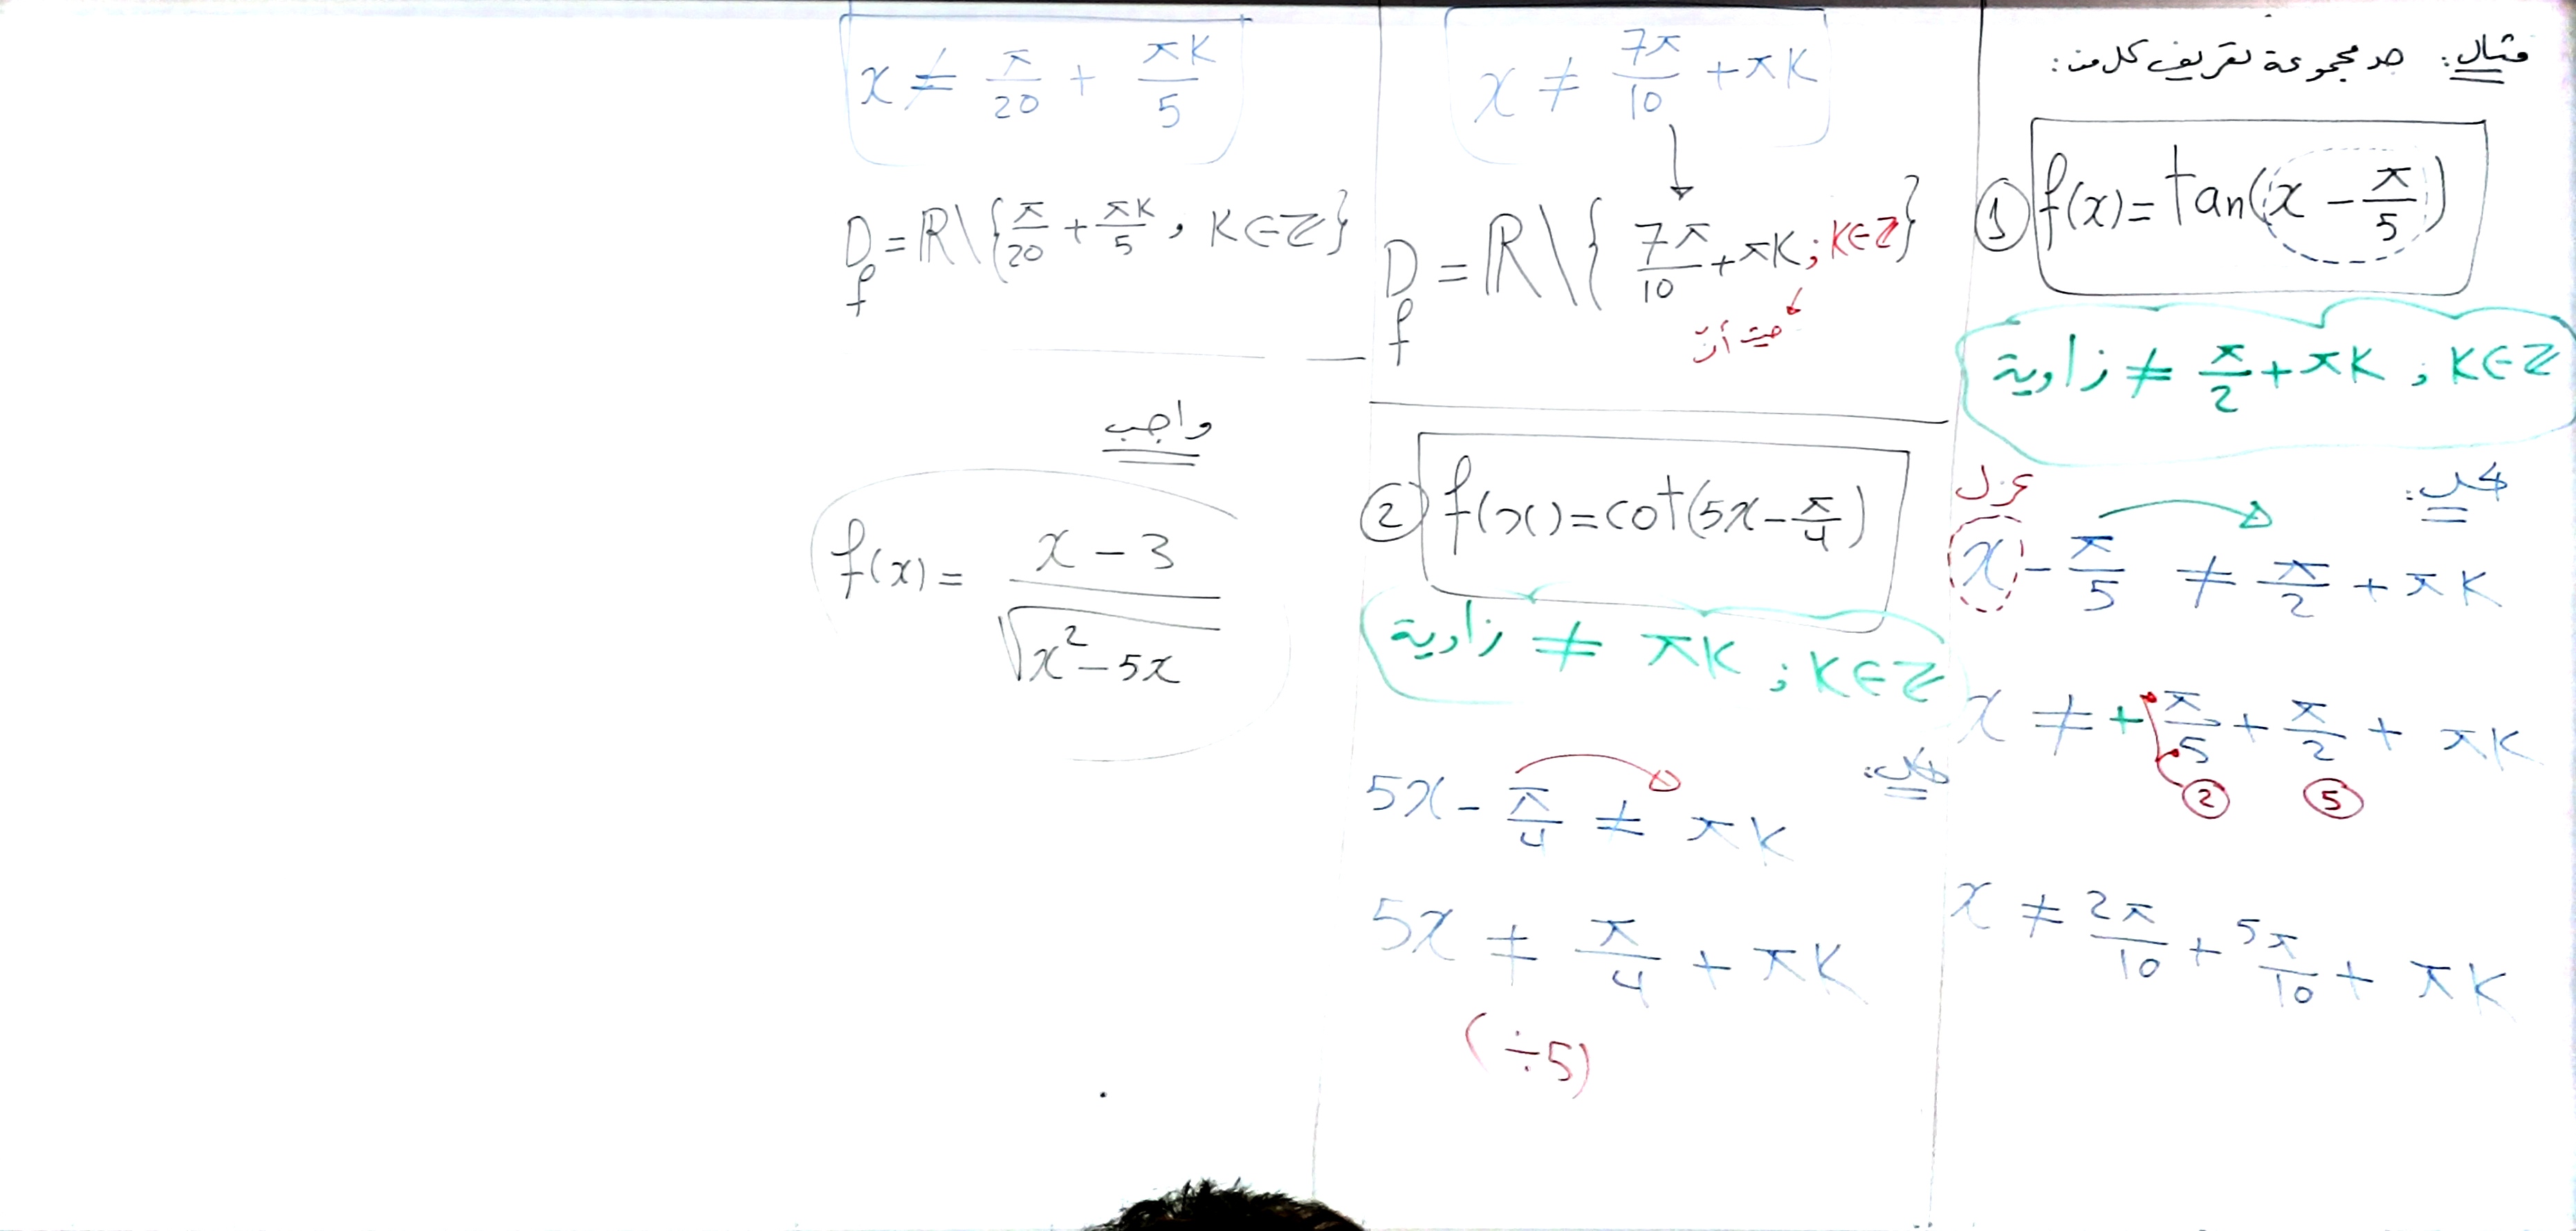 مثال: جد مجموعة تعريف كل من:
① f(x) = tan(x - π/5)
زاوية ≠ π/2 + πK ; K∈Z
الحل:
عزل
x - π/5 ≠ π/2 + πK
x ≠ + π/5 + π/2 + πK
② ⑤
x ≠ 2π/10 + 5π/10 + πK
x ≠ 7π/10 + πK
D_f = ℝ \ { 7π/10 + πK ; K∈Z }
حيث أن
② f(x) = cot(5x - π/4)
زاوية ≠ πK ; K∈Z
الحل:
5x - π/4 ≠ πK
5x ≠ π/4 + πK
(÷5)
x ≠ π/20 + πK/5
D_f = ℝ \ { π/20 + πK/5 , K∈Z }
واجب
f(x) = (x - 3)/√(x² - 5x)